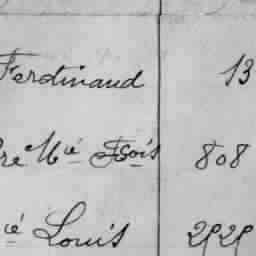 Ferdinand 13
re Mié Fçois 808
ié Louis 2929